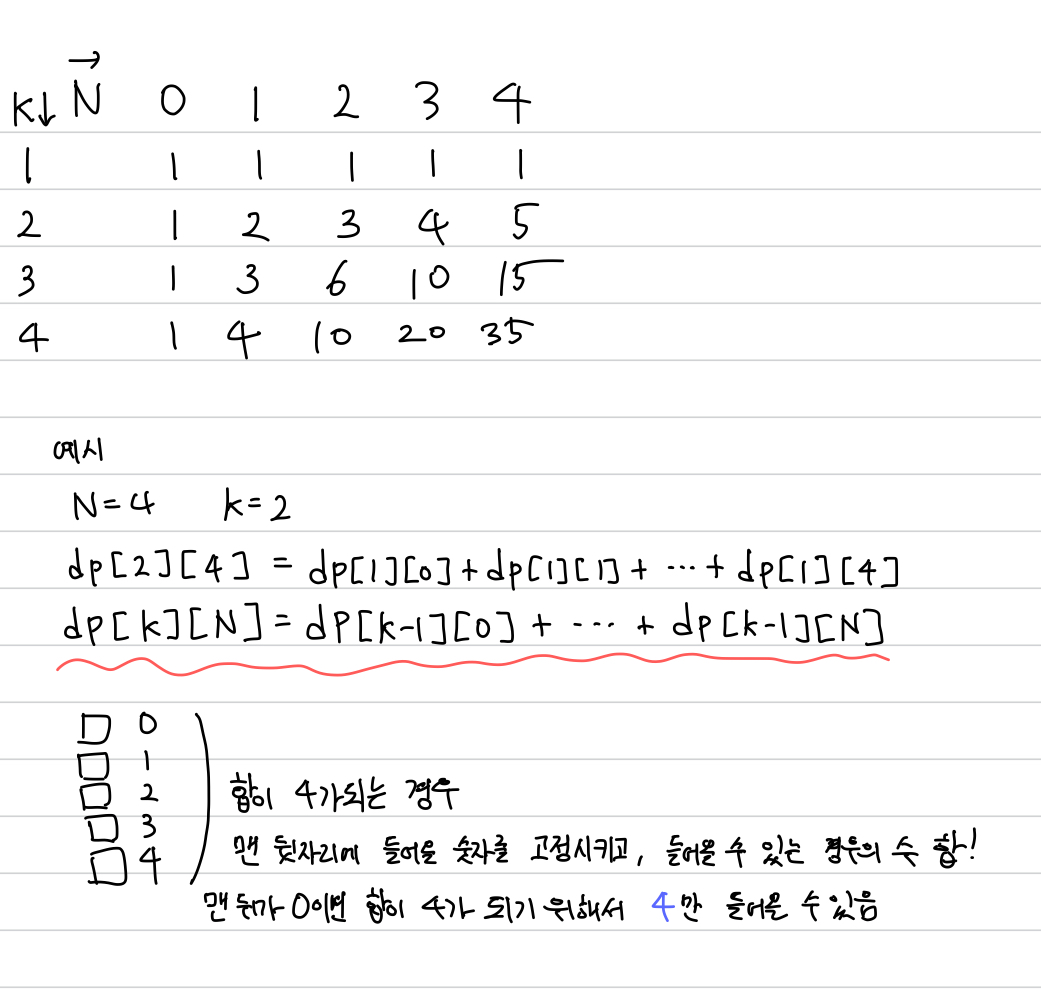 →
k↓ N 0 1 2 3 4
1 1 1 1 1 1
2 1 2 3 4 5
3 1 3 6 10 15
4 1 4 10 20 35
예시
N=4 k=2
dp[2][4] = dp[1][0]+dp[1][1]+ ⋯ + dp[1][4]
dp[k][N]= dP[k-1][0] + --- + dp[k-1][N]
□ 0
□ 1
□ 2
□ 3
□ 4
합이 4가되는 경우
맨 뒷자리에 들어올 숫자를 고정시키고, 들어올 수 있는 경우의 수 합!
맨 뒤가 0이면 합이 4가 되기 위해서 4만 들어올 수 있음